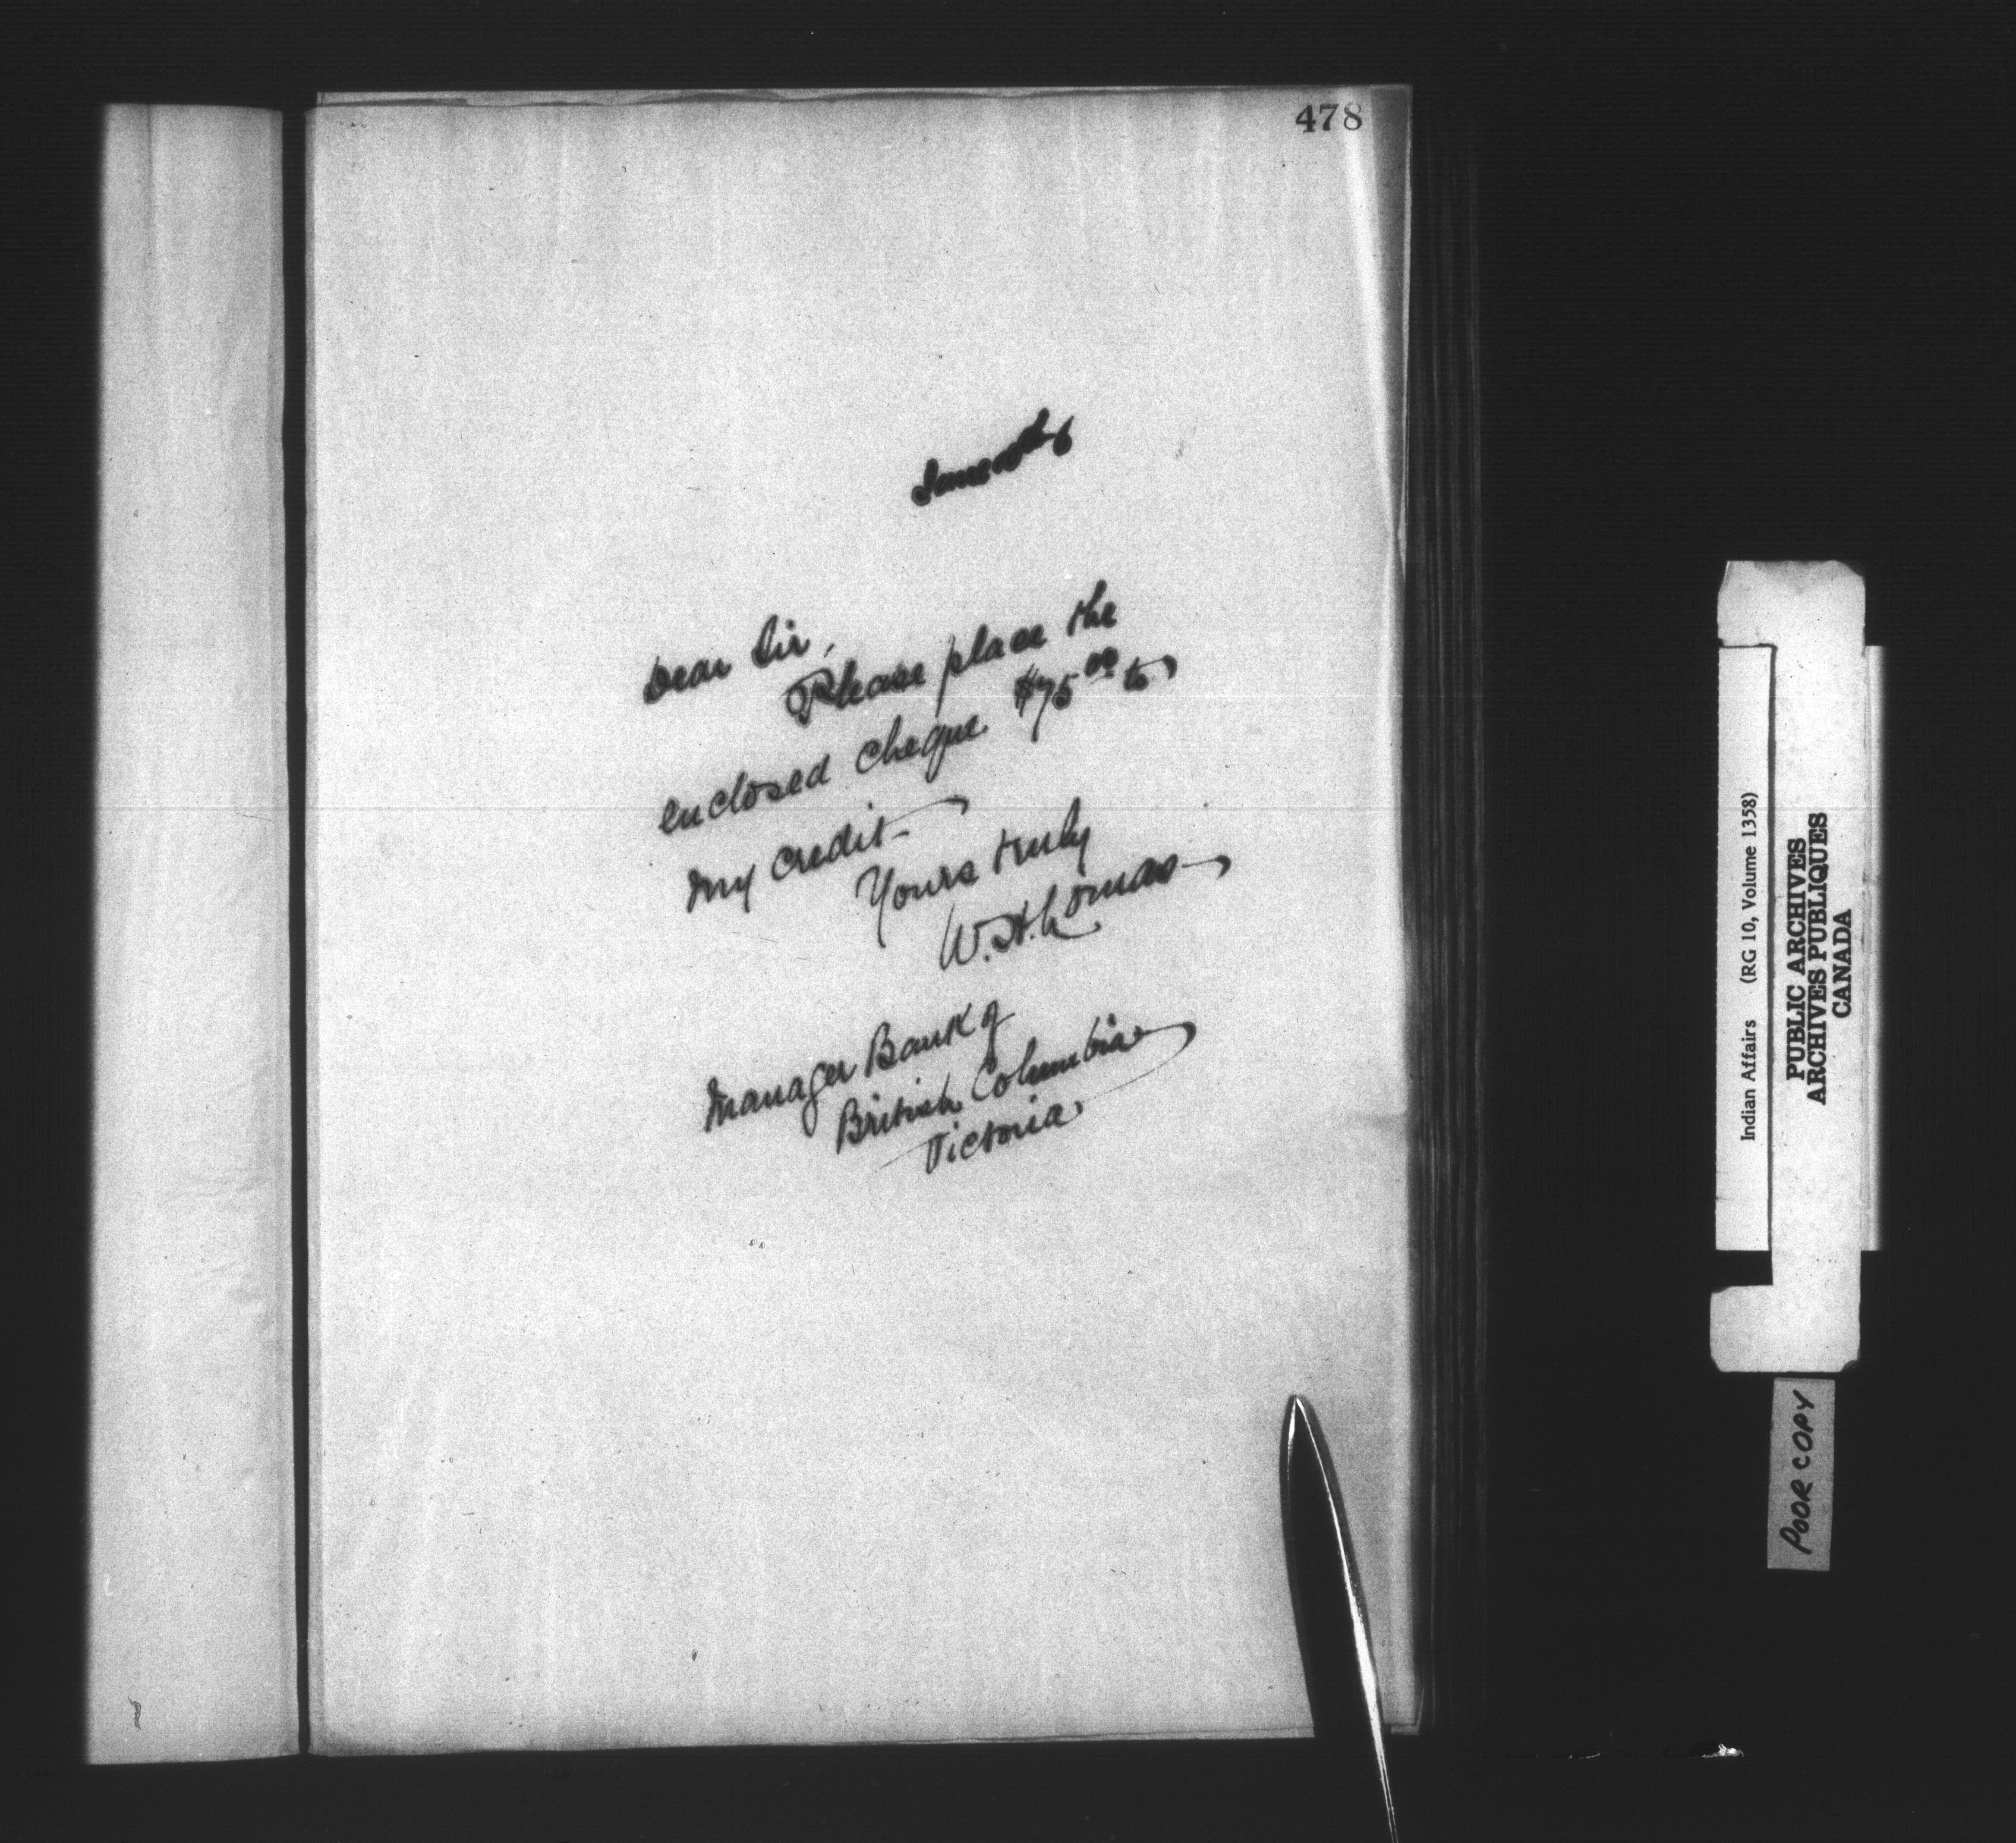 478
June
Dear Sir,
Please place the
enclosed cheque $75 00 to
my credit
Yours truly
W. H. Lomas
Manager Bank of
British Columbia
Victoria
Indian Affairs (RG 10, Volume 1358)
PUBLIC ARCHIVES
ARCHIVES PUBLIQUES
CANADA
POOR COPY